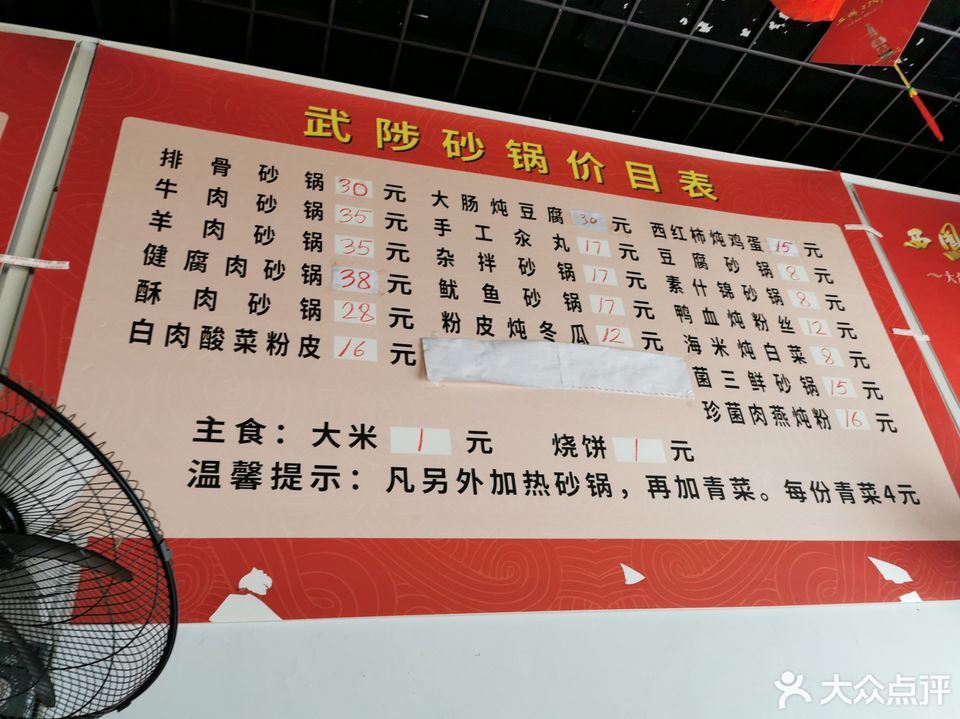 武陟砂锅价目表
排骨砂锅30元
牛肉砂锅35元
羊肉砂锅35元
健腐肉砂锅38元
酥肉砂锅28元
白肉酸菜粉皮16元
大肠炖豆腐30元
手工汆丸17元
杂拌砂锅17元
鱿鱼砂锅17元
粉皮炖冬瓜12元
西红柿炖鸡蛋15元
豆腐砂锅8元
素什锦砂锅8元
鸭血炖粉丝12元
海米炖白菜8元
菌三鲜砂锅15元
珍菌肉燕炖粉16元
主食：大米1元 烧饼1元
温馨提示：凡另外加热砂锅，再加青菜。每份青菜4元
大众点评